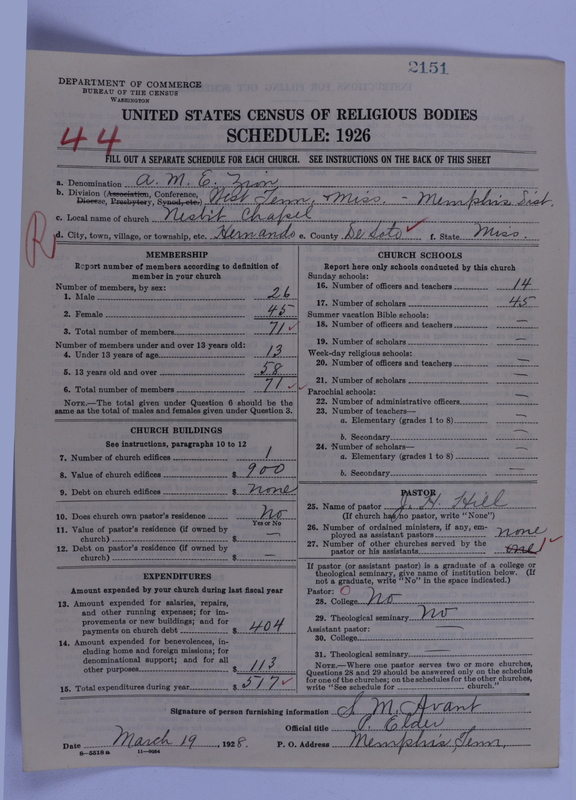 2151
DEPARTMENT OF COMMERCE
BUREAU OF THE CENSUS
WASHINGTON
UNITED STATES CENSUS OF RELIGIOUS BODIES
SCHEDULE: 1926
44
FILL OUT A SEPARATE SCHEDULE FOR EACH CHURCH. SEE INSTRUCTIONS ON THE BACK OF THIS SHEET
a. Denomination A. M. E. Zion
b. Division (Association, Conference, Diocese, Presbytery, Synod, etc.) West Tenn, Miss. - Memphis Dist.
c. Local name of church Nesbit Chapel
R
d. City, town, village, or township, etc. Hernando e. County De Soto ✓ f. State Miss.
MEMBERSHIP
Report number of members according to definition of member in your church
Number of members, by sex:
1. Male 26
2. Female 45
3. Total number of members 71 ✓
Number of members under and over 13 years old:
4. Under 13 years of age 13
5. 13 years old and over 58
6. Total number of members 71 ✓
NOTE.—The total given under Question 6 should be the
same as the total of males and females given under Question 3.
CHURCH BUILDINGS
See instructions, paragraphs 10 to 12
7. Number of church edifices 1
8. Value of church edifices $ 900
9. Debt on church edifices $ none
10. Does church own pastor's residence No
Yes or No
11. Value of pastor's residence (if owned by
church) $ —
12. Debt on pastor's residence (if owned by
church) $ —
EXPENDITURES
Amount expended by your church during last fiscal year
13. Amount expended for salaries, repairs,
and other running expenses; for im-
provements or new buildings; and for
payments on church debt $ 404
14. Amount expended for benevolences, in-
cluding home and foreign missions; for
denominational support; and for all
other purposes $ 113
15. Total expenditures during year $ 517 ✓
CHURCH SCHOOLS
Report here only schools conducted by this church
Sunday schools:
16. Number of officers and teachers 14
17. Number of scholars 45
Summer vacation Bible schools:
18. Number of officers and teachers —
19. Number of scholars —
Week-day religious schools:
20. Number of officers and teachers —
21. Number of scholars —
Parochial schools:
22. Number of administrative officers —
23. Number of teachers—
a. Elementary (grades 1 to 8) —
b. Secondary —
24. Number of scholars—
a. Elementary (grades 1 to 8) —
b. Secondary —
PASTOR
25. Name of pastor J. H. Hill
(If church has no pastor, write "None")
26. Number of ordained ministers, if any, em-
ployed as assistant pastors none
27. Number of other churches served by the
pastor or his assistants one 1 ✓
If pastor (or assistant pastor) is a graduate of a college or
theological seminary, give name of institution below. (If
not a graduate, write "No" in the space indicated.)
Pastor: 0
28. College No
29. Theological seminary No
Assistant pastor:
30. College —
31. Theological seminary —
NOTE.—Where one pastor serves two or more churches,
Questions 28 and 29 should be answered only on the schedule
for one of the churches; on the schedules for the other churches,
write "See schedule for church."
Signature of person furnishing information S. M. Avant
Official title P. Elder
Date March 19, 1928. P. O. Address Memphis, Tenn,
8-5518a 11-9064